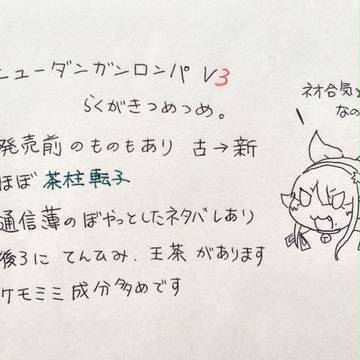 ニューダンガンロンパ V3
らくがきつめつめ。
発売前のものもあり 古→新
ほぼ 茶柱転子
通信薄のぼやっとしたネタバレあり
後ろに てんひみ. 王茶 があります
ケモミミ成分多めです
ネオ合気
なの